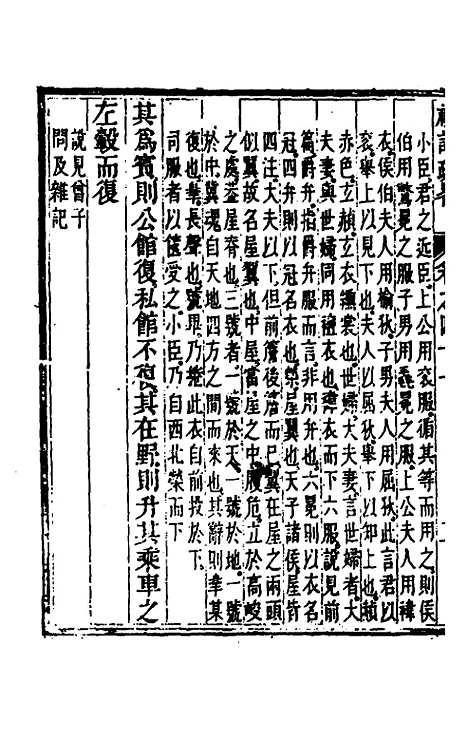 小臣君之近臣上公用衮服循其等而用之則侯
伯用鷩冕之服子男用毳冕之服上公夫人用褘
衣侯伯夫人用榆狄子男夫人用屈狄此言君以
衮舉上以見下也夫人以屈狄舉下以卹上也赬
赤色玄赬玄衣纁裳也世婦大夫妻言世婦者大
夫妻與世婦同用襢衣也褘衣而下六服說見前
篇爵弁指爵弁服而言非用弁也六冕則以衣名
冠四弁則以冠名衣也榮屋翼也天子諸侯屋皆
四注大夫以下但前簷後簷而已翼在屋之兩頭
似翼故名屋翼也中屋當屋之中履危立於高峻
之處葢屋脊也三號者一號於天一號於地一號
於中冀魂自天地四方之間而來也其辭則皋某
復也皋長聲也號畢乃捲此衣自前投於下
司服者以篋受之小臣乃自西北榮而下
其爲賓則公館復私館不復其在野則升其乘車之
左轂而復
說見曾子
問及雜記